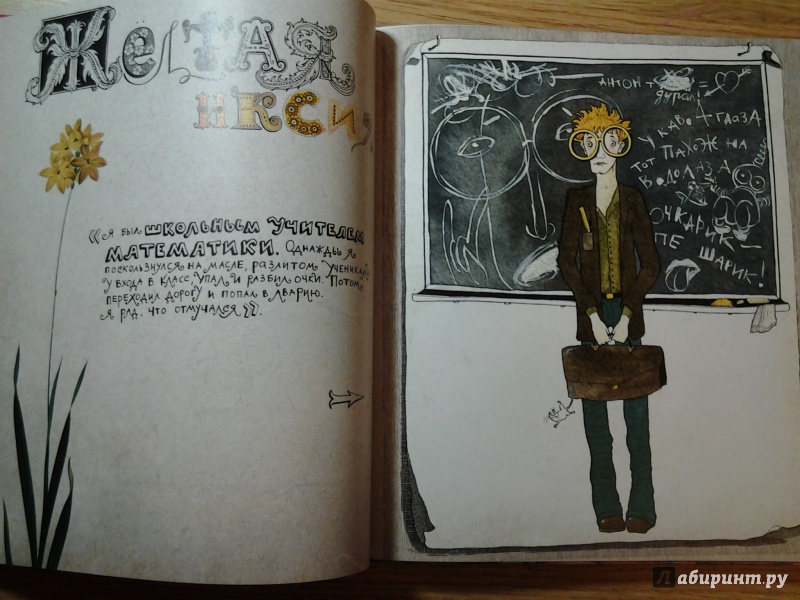 Жёлтая
икси
«Я был школьным учителем
математики. Однажды я
поскользнулся на масле, разлитом ученика
у входа в класс, упал и разбил очки. Потом
переходил дорогу и попал в аварию.
Я рад, что отмучался».
Антон + =
дурак!
У кого 4 глаза
тот похож на
водолаза
очкарик —
пе шарик!
Лабиринт.ру